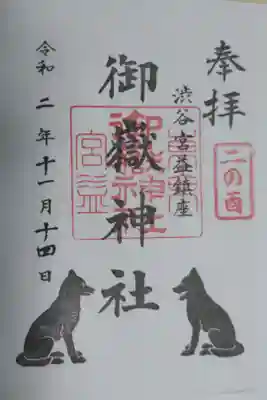 奉拝
渋谷宮益鎮座
二の酉
御嶽神社
宮益
御嶽神社
令和二年十一月十四日